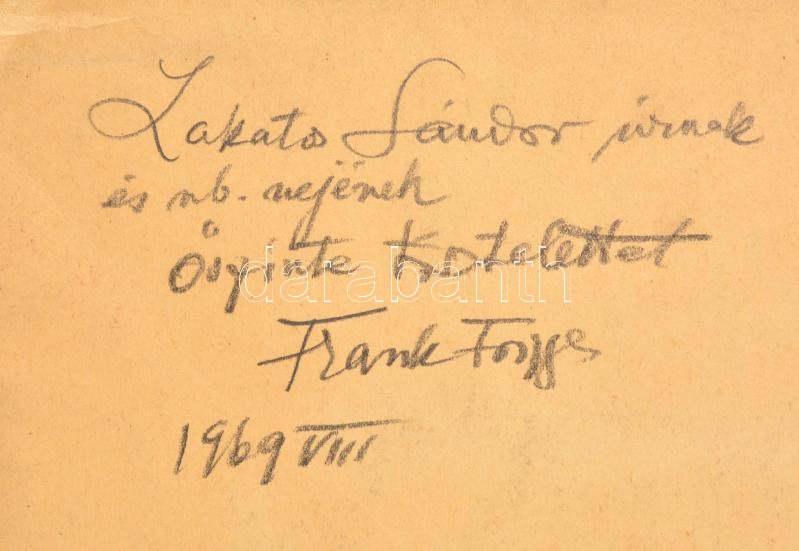 Lakatos Sándor úrnak
és nb. nejének
Őszinte tisztelettel
darabanth
Frank Frigyes
1969 VIII